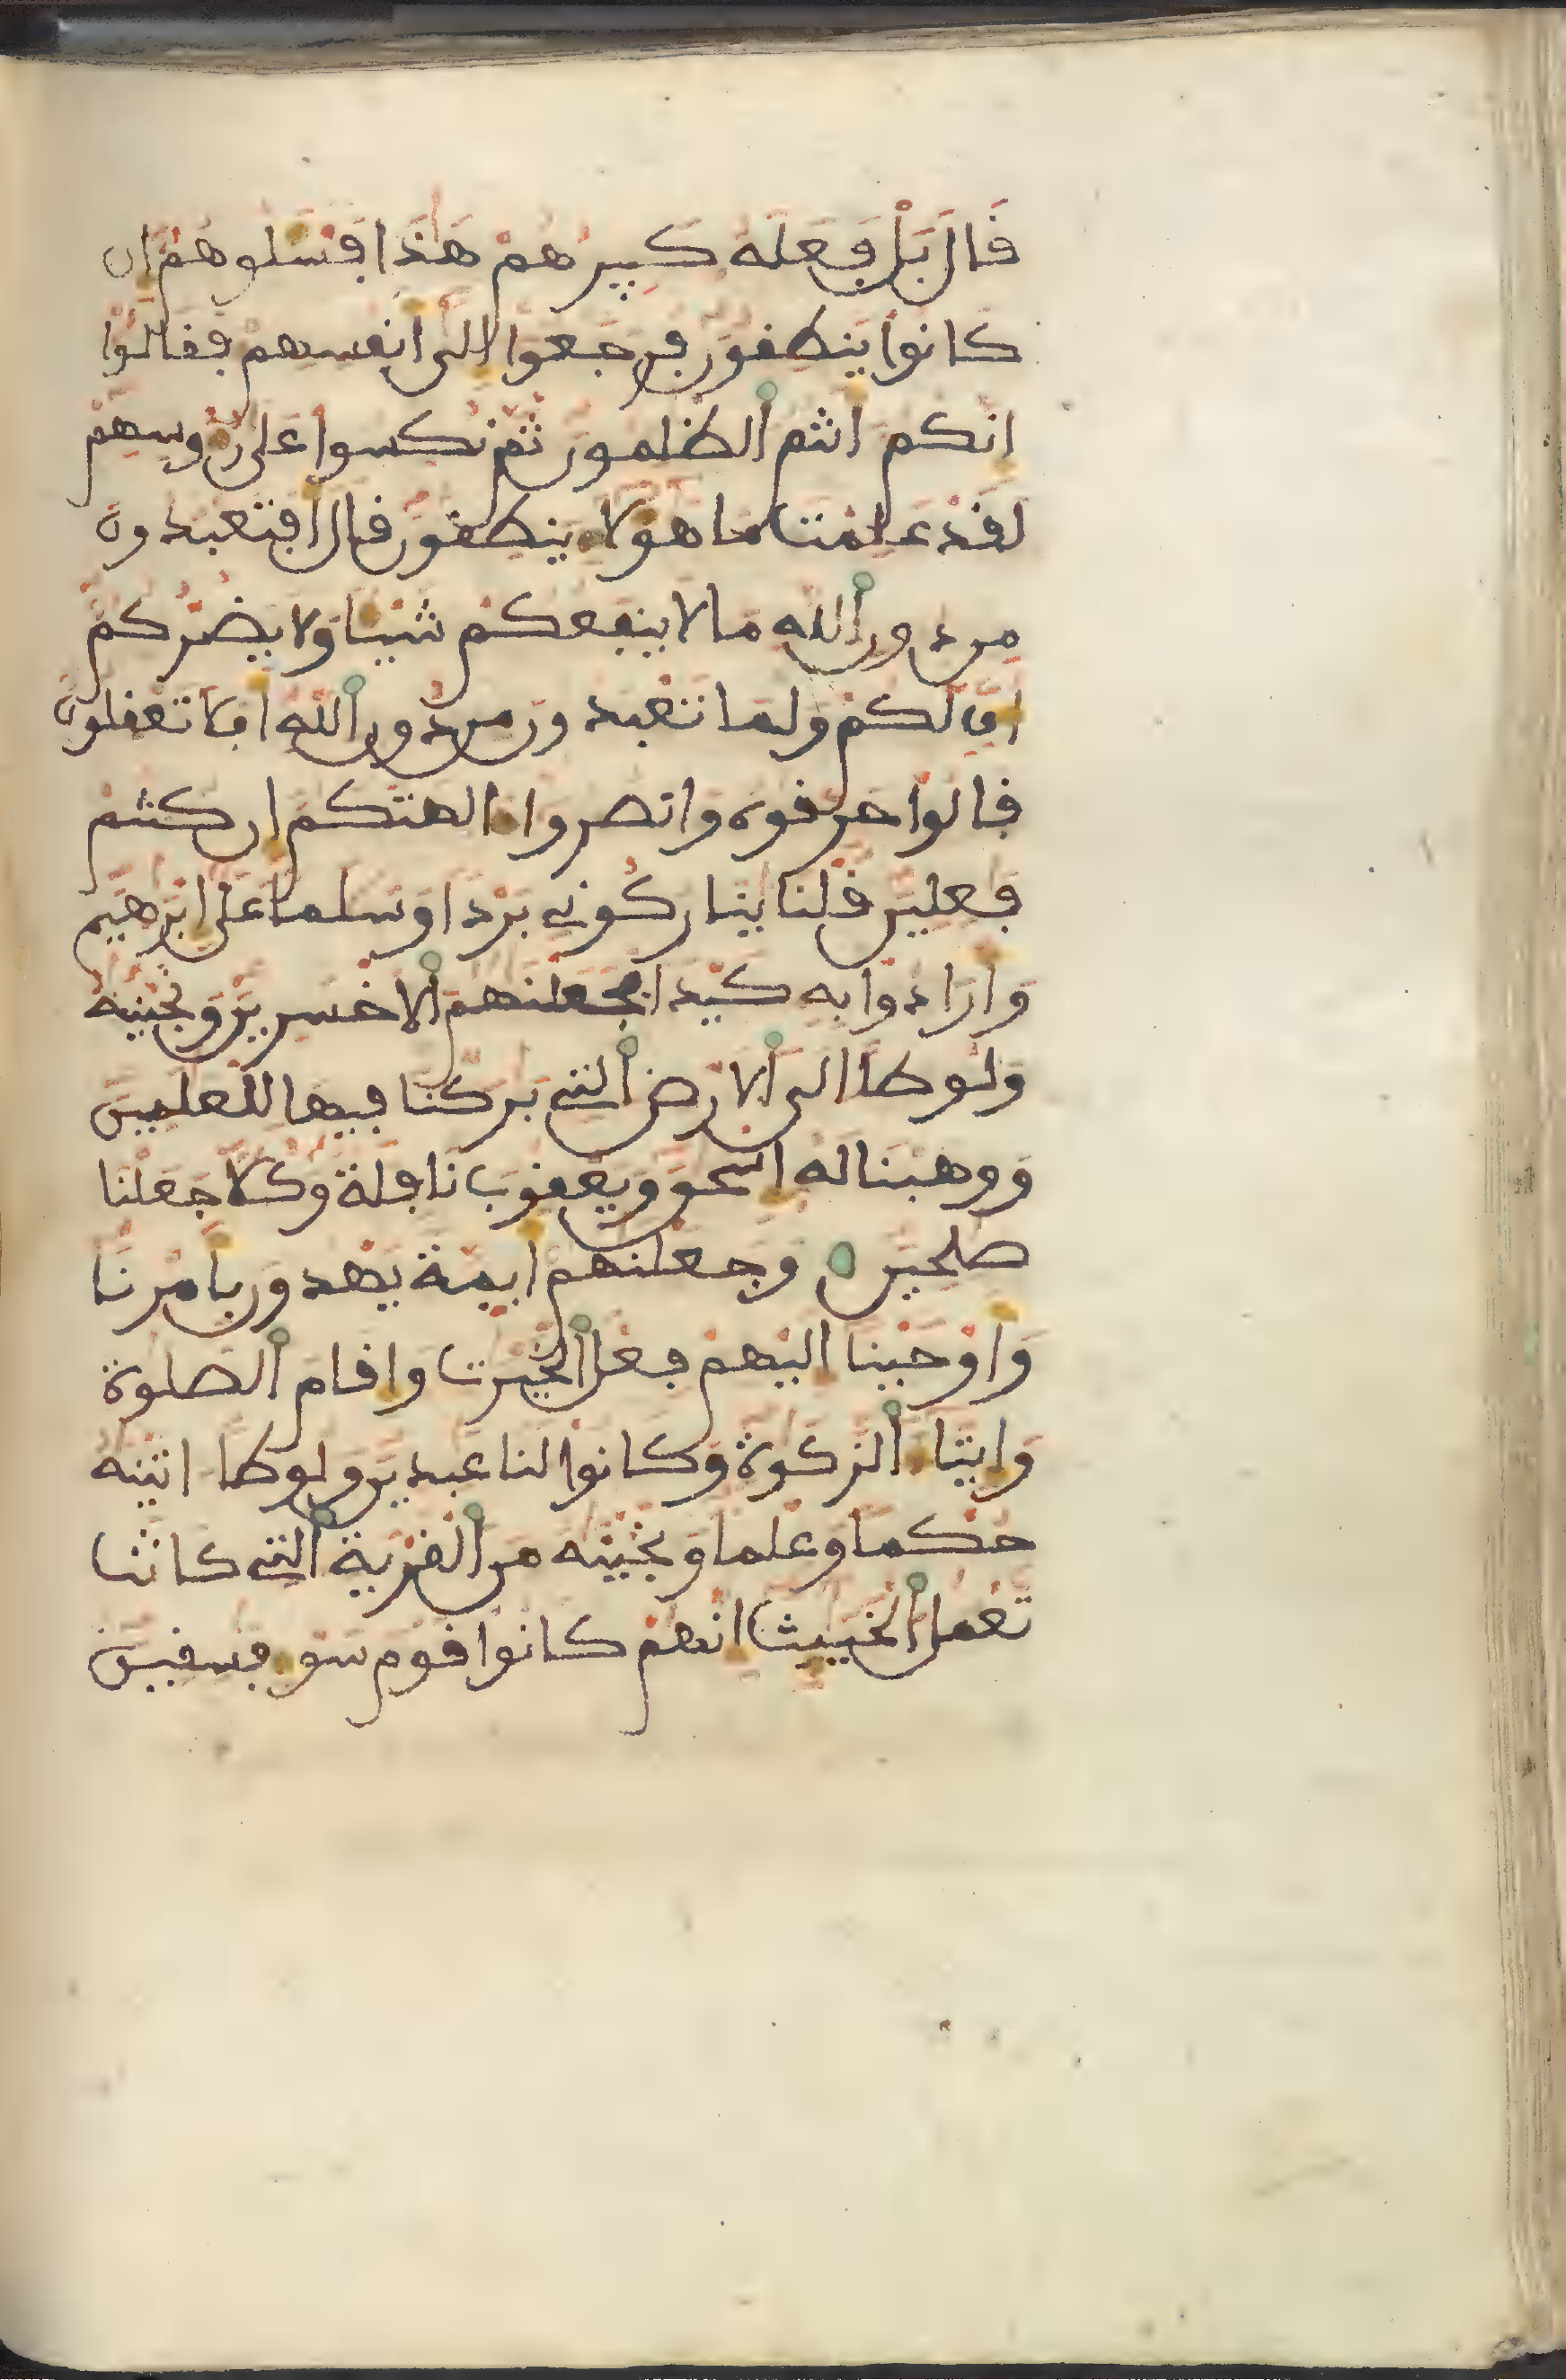 قَالَ بَلْ فَعَلَهُ كَبِيرُهُمْ هَٰذَا فَسْـَٔلُوهُمْ إِن
كَانُوا يَنطِقُونَ فَرَجَعُوا إِلَىٰ أَنفُسِهِمْ فَقَالُوا
إِنَّكُمْ أَنتُمُ ٱلظَّٰلِمُونَ ثُمَّ نُكِسُوا عَلَىٰ رُءُوسِهِمْ
لَقَدْ عَلِمْتَ مَا هَٰؤُلَاءِ يَنطِقُونَ قَالَ أَفَتَعْبُدُونَ
مِن دُونِ ٱللَّهِ مَا لَا يَنفَعُكُمْ شَيْـًٔا وَلَا يَضُرُّكُمْ
أُفٍّ لَّكُمْ وَلِمَا تَعْبُدُونَ مِن دُونِ ٱللَّهِ أَفَلَا تَعْقِلُونَ
قَالُوا حَرِّقُوهُ وَانصُرُوا ءَالِهَتَكُمْ إِن كُنتُمْ
فَٰعِلِينَ قُلْنَا يَٰنَارُ كُونِي بَرْدًا وَسَلَٰمًا عَلَىٰ إِبْرَٰهِيمَ
وَأَرَادُوا بِهِ كَيْدًا فَجَعَلْنَٰهُمُ ٱلْأَخْسَرِينَ وَنَجَّيْنَٰهُ
وَلُوطًا إِلَى ٱلْأَرْضِ ٱلَّتِي بَٰرَكْنَا فِيهَا لِلْعَٰلَمِينَ
وَوَهَبْنَا لَهُ إِسْحَٰقَ وَيَعْقُوبَ نَافِلَةً وَكُلًّا جَعَلْنَا
صَٰلِحِينَ وَجَعَلْنَٰهُمْ أَيِمَّةً يَهْدُونَ بِأَمْرِنَا
وَأَوْحَيْنَا إِلَيْهِمْ فِعْلَ ٱلْخَيْرَٰتِ وَإِقَامَ ٱلصَّلَوٰةِ
وَإِيتَاءَ ٱلزَّكَوٰةِ وَكَانُوا لَنَا عَٰبِدِينَ وَلُوطًا ءَاتَيْنَٰهُ
حُكْمًا وَعِلْمًا وَنَجَّيْنَٰهُ مِنَ ٱلْقَرْيَةِ ٱلَّتِي كَانَت
تَّعْمَلُ ٱلْخَبَٰٓئِثَ إِنَّهُمْ كَانُوا قَوْمَ سَوْءٍ فَٰسِقِينَ